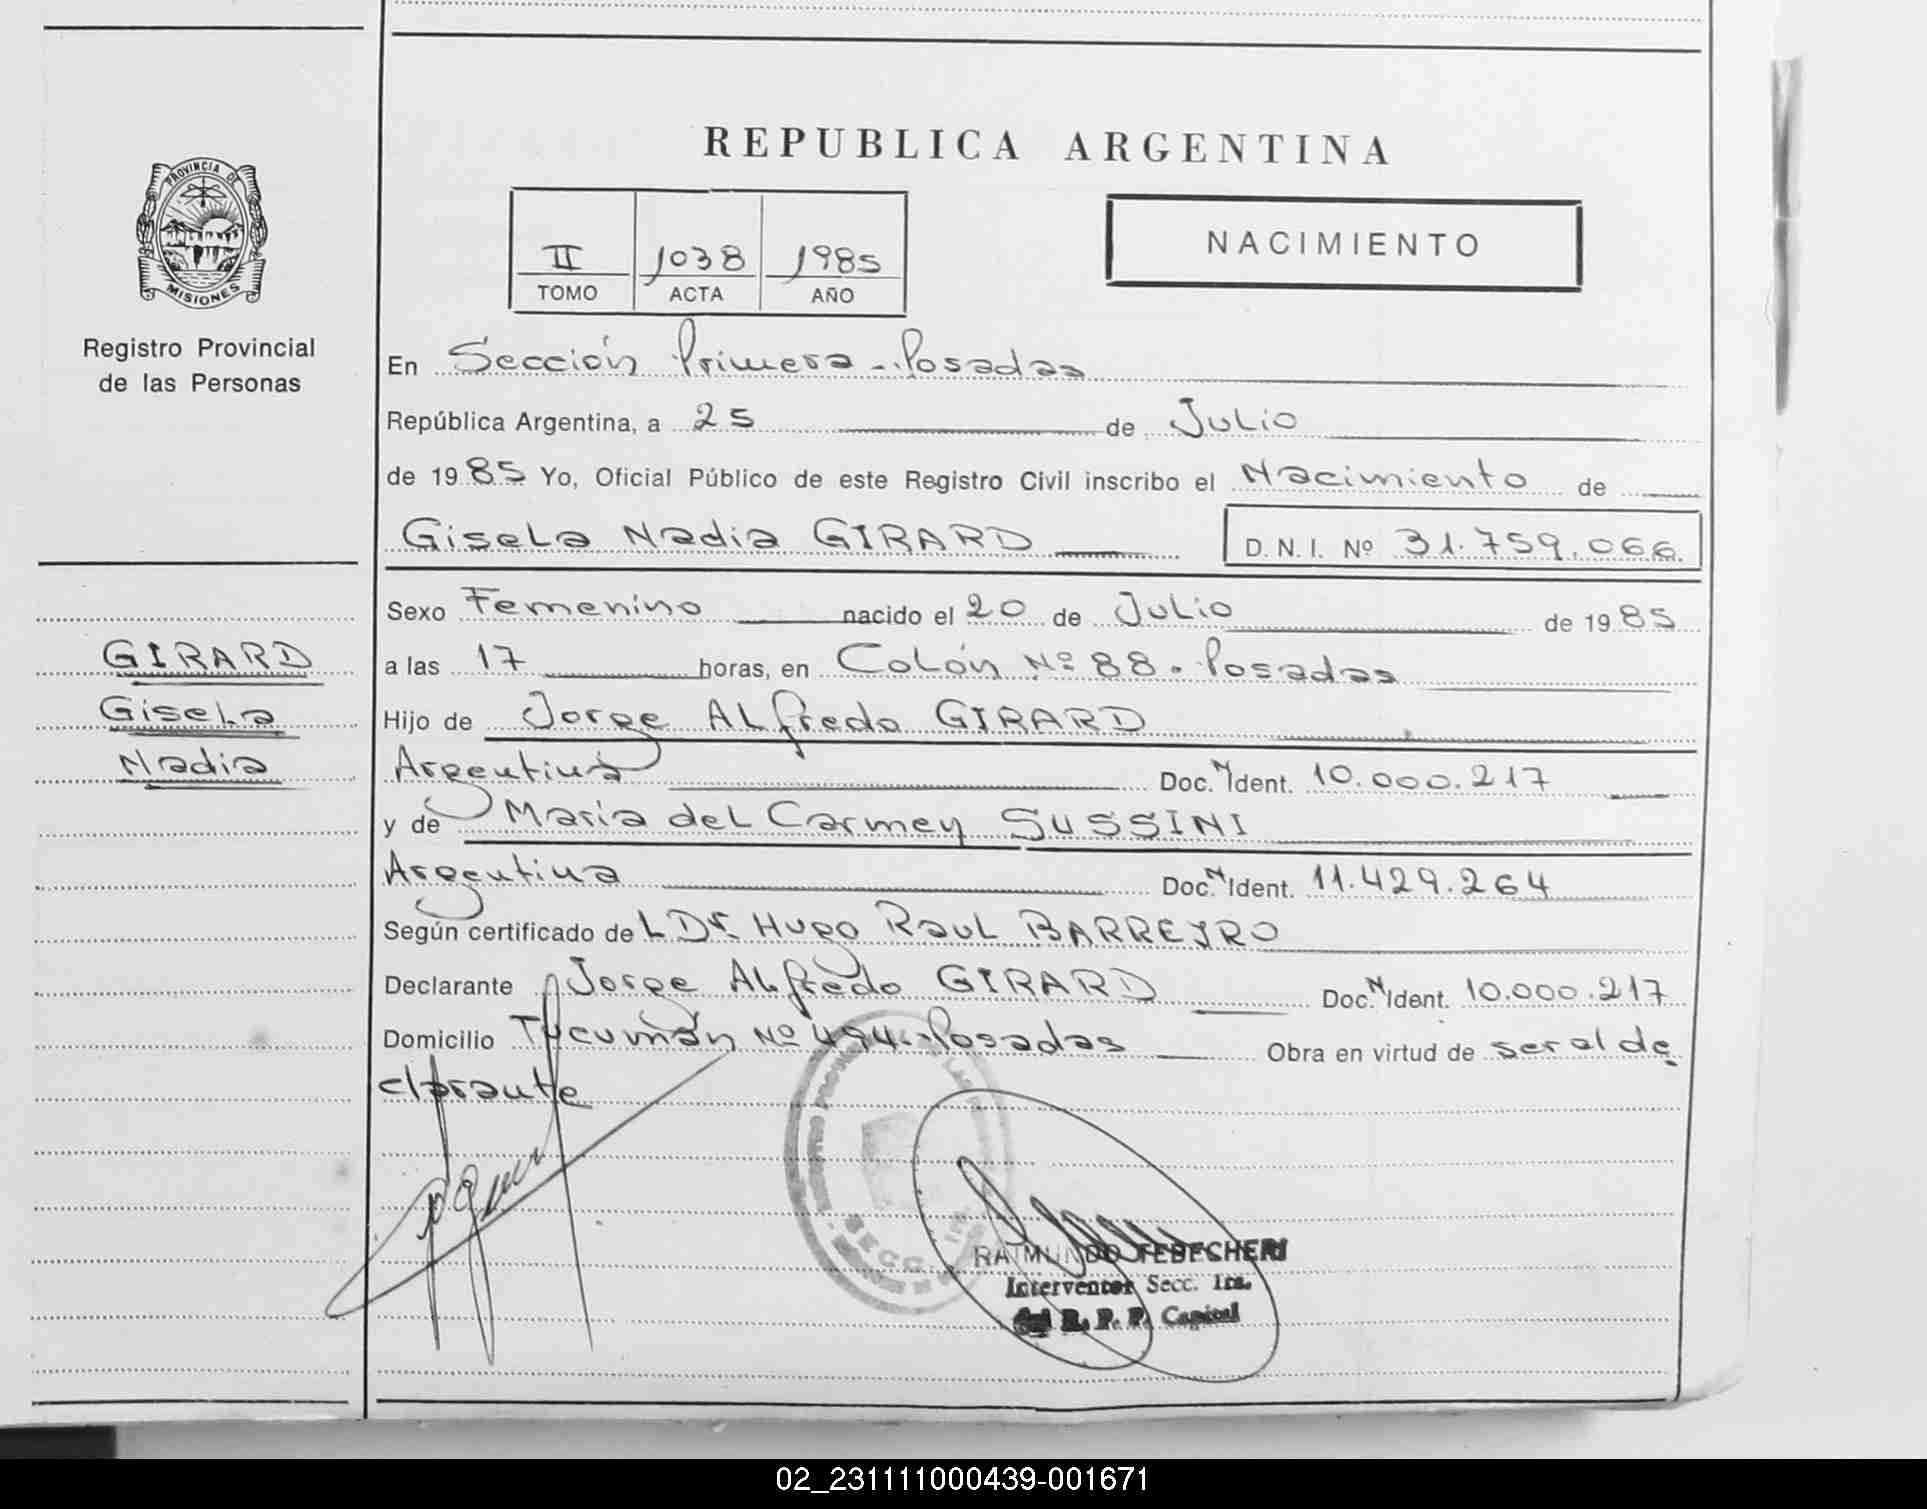 REPUBLICA ARGENTINA
PROVINCIA DE
MISIONES
Registro Provincial
de las Personas
II 1038 1985
TOMO ACTA AÑO
NACIMIENTO
En Sección Primera - Posadas
República Argentina, a 25 de Julio
de 1985 Yo, Oficial Público de este Registro Civil inscribo el Nacimiento de
Gisela Nadia GIRARD D. N. I. Nº 31.759.066
Sexo Femenino nacido el 20 de Julio de 1985
GIRARD
Gisela
Nadia
a las 17 horas, en Colón Nº 88 - Posadas
Hijo de Jorge Alfredo GIRARD
Argentina Doc. N Ident. 10.000.217
y de Maria del Carmen SUSSINI
Argentina Doc. N Ident. 11.429.264
Según certificado del Dr. Hugo Raul BARREYRO
Declarante Jorge Alfredo GIRARD Doc. N Ident. 10.000.217
Domicilio Tucumán Nº 494 - Posadas Obra en virtud de ser el de
clarante
SECC. 1ra.
RAIMUNDO TEBECHERI
Interventor Secc. 1ra.
del R. P. P. Capital
02_231111000439-001671